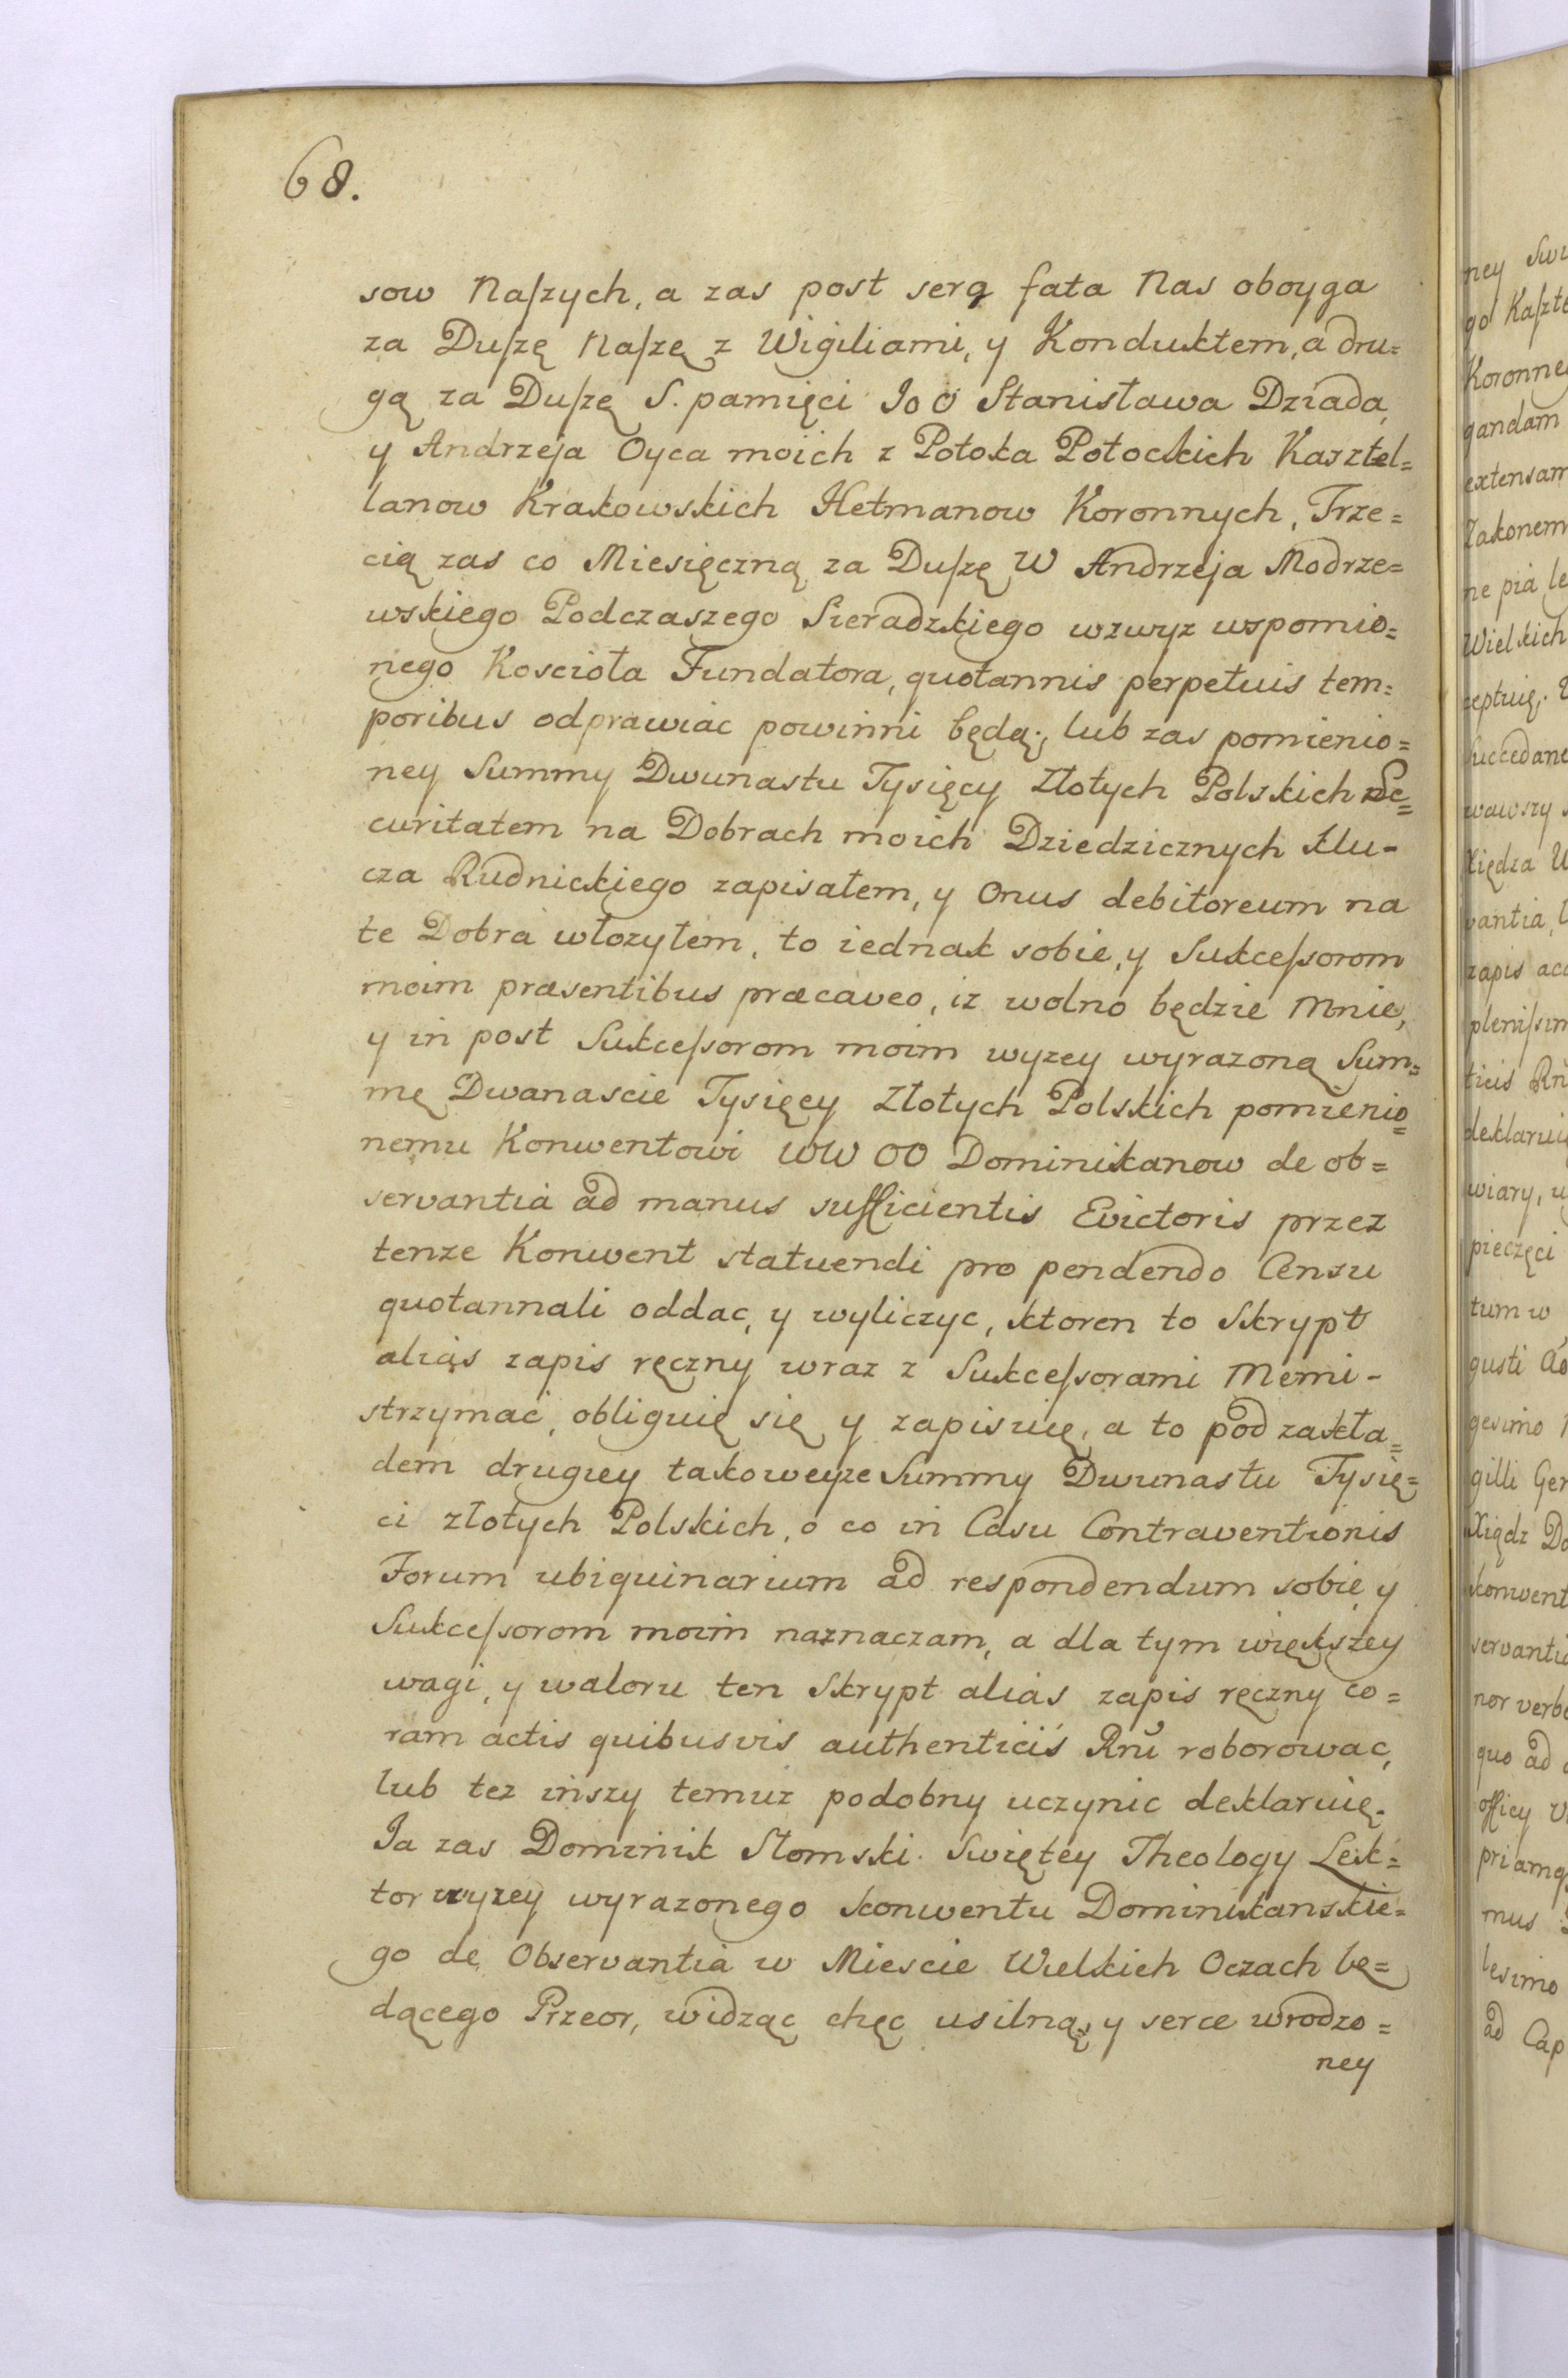 68.
sow Naſzych, a zas post serą fata Nas oboyga
za Duſzę Naſzę z Wigiliami, y Konduktem, a dru=
gą za Duſzę S. pamięci Jo O Stanisława Dziada,
y Andrzeja Oyca moich z Potoka Potockich Kasztel=
lanow Krakowskich Hetmanow Koronnych, Trze=
cią zas co Miesięczną za Duſzę W Andrzeja Modrze=
wskiego Podczaszego Sieradzkiego wzwyz wspomio=
nego Koscioła Fundatora, quotannis perpetuis tem=
poribus odprawiac powinni będą; lub zas pomienio=
ney Summy Dwunastu Tysięcy Złotych Polskich Se=
curitatem na Dobrach moich Dziedzicznych Klu-
cza Rudnickiego zapisałem, y Onus debitoreum na
te Dobra włozyłem, to iednak sobie, y Sukceſsorom
moim præsentibus præcaveo, iz wolno będzie Mnie,
y in post Sukceſsorom moim wyzey wyrazoną Sum=
mę Dwanascie Tysięcy Złotych Polskich pomienio=
nemu Konwentowi WW OO Dominikanow de ob=
servantia ad manus sufficientis Evictoris przez
tenze Konwent statuendi pro pendendo Censu
quotannali oddac, y wyliczyc, ktoren to Skrypt
alias zapis ręczny wraz z Sukceſsorami Memi-
strzymac, obliguię się y zapisuię, a to pod zakła=
dem drugiey takoweyze Summy Dwunastu Tysię=
ci złotych Polskich, o co in Casu Contraventionis
Forum ubiquinarium ad respondendum sobie y
Sukceſsorom moim naznaczam, a dla tym większey
wagi, y waloru ten Skrypt alias zapis ręczny co=
ram actis quibusvis authenticis Rnŭ roborowac,
lub tez inszy temuz podobny uczynic deklaruię.
Ja zas Dominik Słomski Swiętey Theology Lek=
tor wyzey wyrazonego konwentu Dominikanskie=
go de Observantia w Miescie Wielkich Oczach bę=
dącego Przeor, widząc chęc usilną, y serce wrodzo=
ney